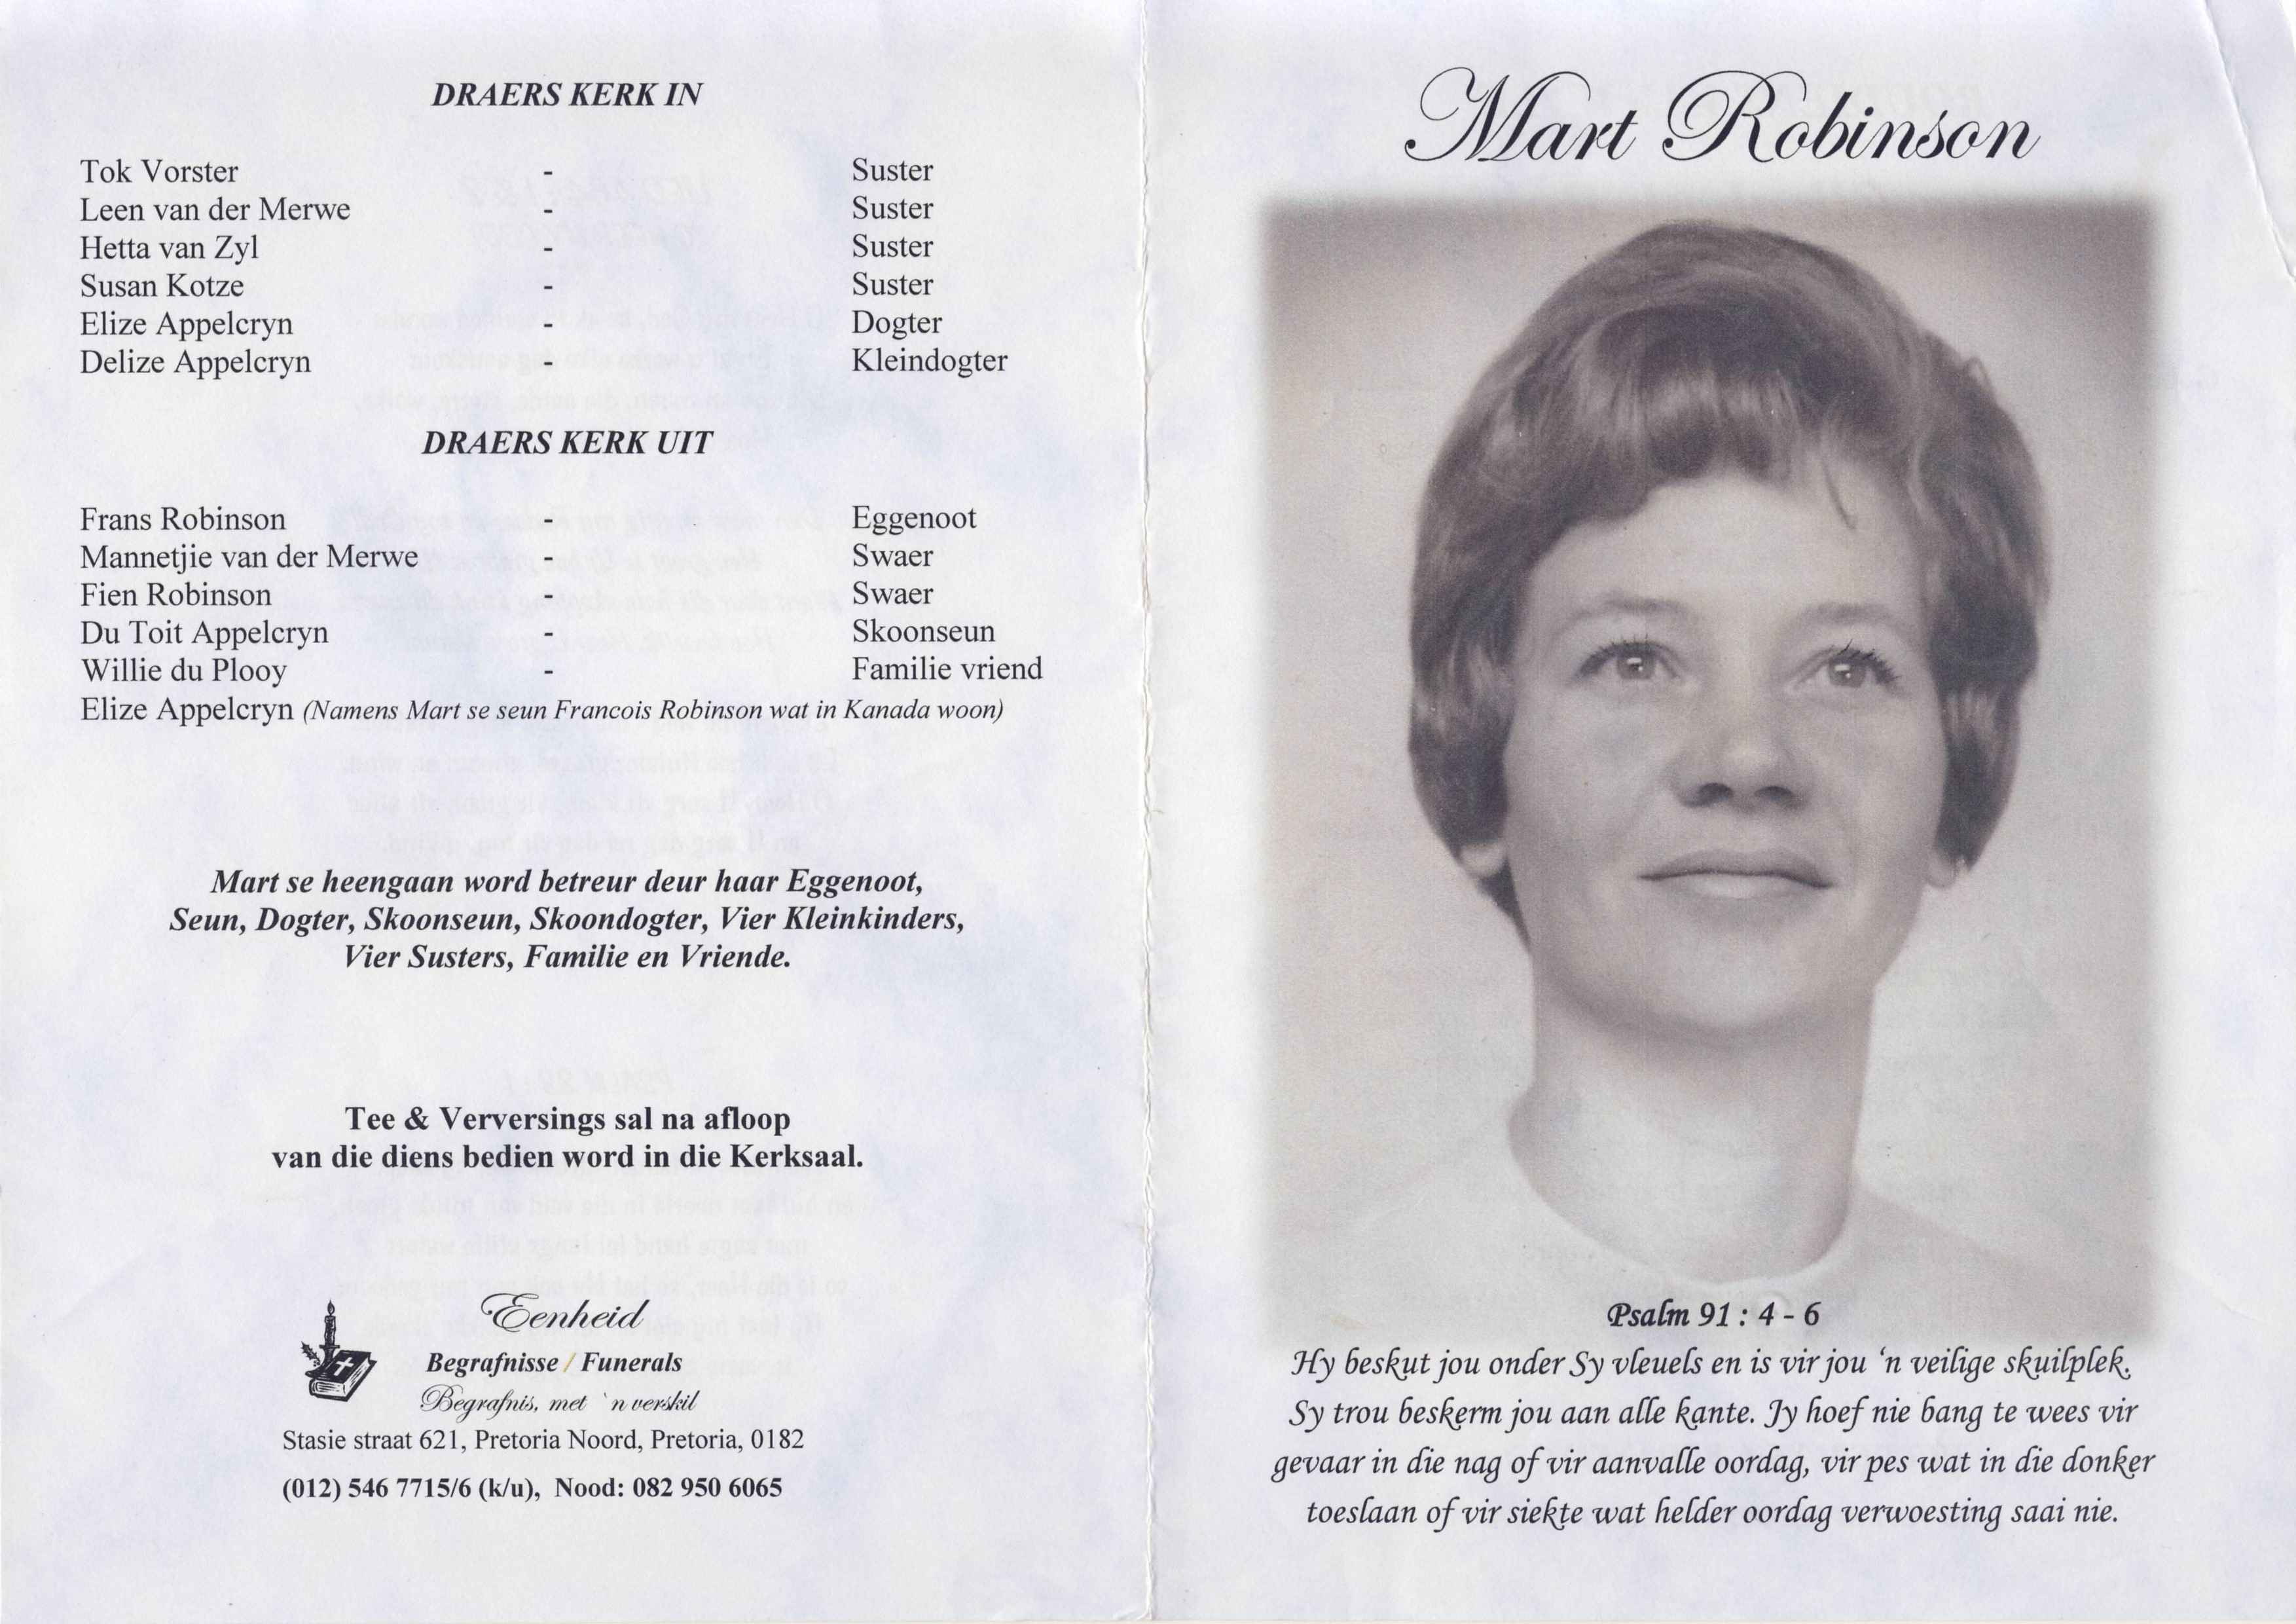 DRAERS KERK IN
Tok Vorster - Suster
Leen van der Merwe - Suster
Hetta van Zyl - Suster
Susan Kotze - Suster
Elize Appelcryn - Dogter
Delize Appelcryn - Kleindogter
DRAERS KERK UIT
Frans Robinson - Eggenoot
Mannetjie van der Merwe - Swaer
Fien Robinson - Swaer
Du Toit Appelcryn - Skoonseun
Willie du Plooy - Familie vriend
Elize Appelcryn (Namens Mart se seun Francois Robinson wat in Kanada woon)
Mart se heengaan word betreur deur haar Eggenoot,
Seun, Dogter, Skoonseun, Skoondogter, Vier Kleinkinders,
Vier Susters, Familie en Vriende.
Tee & Verversings sal na afloop
van die diens bedien word in die Kerksaal.
Eenheid
Begrafnisse / Funerals
Begrafnis, met `n verskil
Stasie straat 621, Pretoria Noord, Pretoria, 0182
(012) 546 7715/6 (k/u), Nood: 082 950 6065
Mart Robinson
Psalm 91 : 4 - 6
Hy beskut jou onder Sy vleuels en is vir jou ‘n veilige skuilplek.
Sy trou beskerm jou aan alle kante. Jy hoef nie bang te wees vir
gevaar in die nag of vir aanvalle oordag, vir pes wat in die donker
toeslaan of vir siekte wat helder oordag verwoesting saai nie.